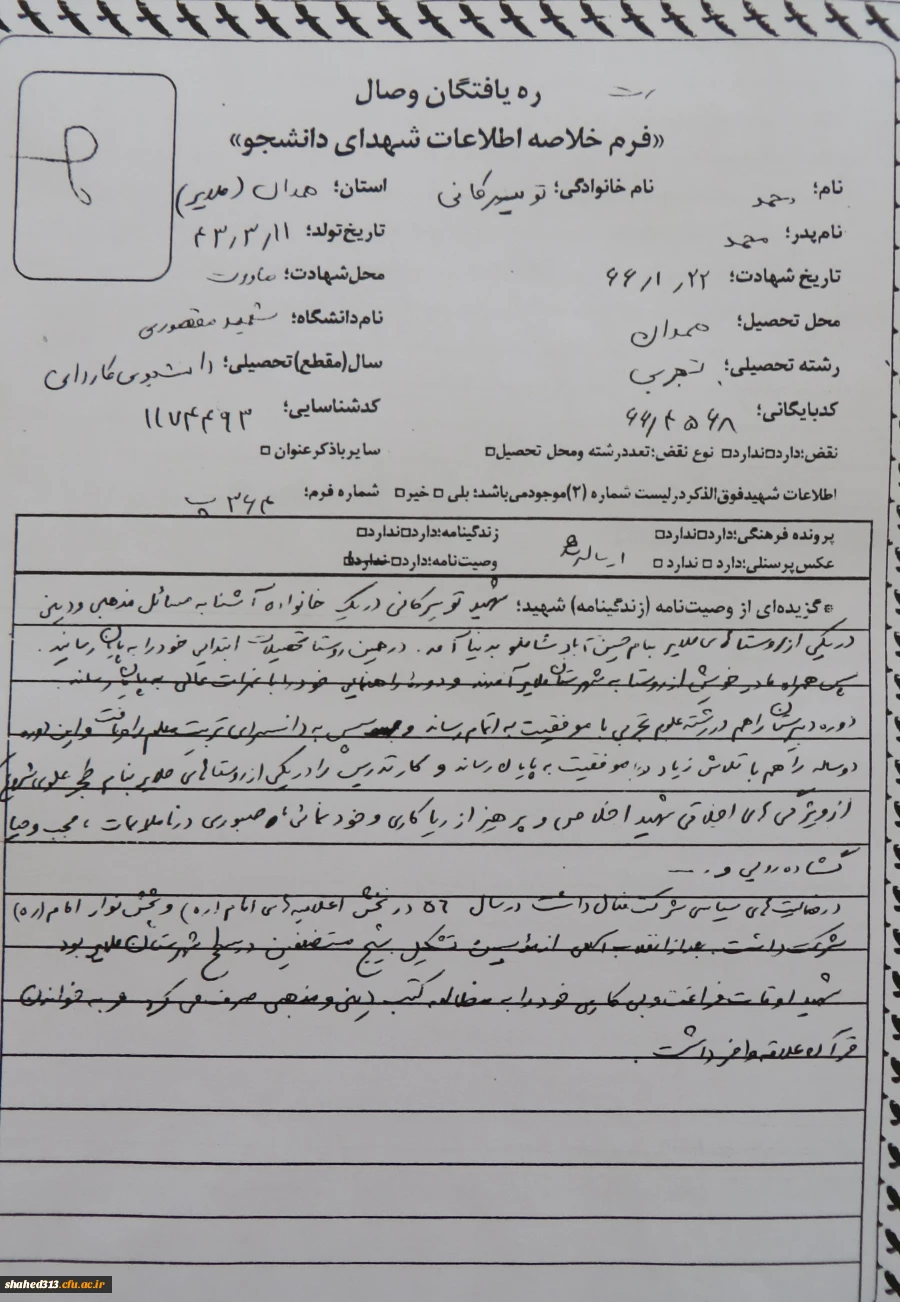 ره یافتگان وصال
«فرم خلاصه اطلاعات شهدای دانشجو»
نام؛ محمد نام خانوادگی؛ تویسرکانی استان؛ همدان (ملایر)
نام پدر؛ محمد تاریخ تولد؛ ۴۳٫۳٫۱۱
تاریخ شهادت؛ ۶۶٫۱٫۲۲ محل شهادت؛
محل تحصیل؛ همدان نام دانشگاه؛ شهید مقصودی
رشته تحصیلی؛ تجربی سال(مقطع)تحصیلی؛ دانشجوی کاردانی
کدبایگانی؛ ۶۶/۴۵۶۸ کدشناسایی؛ ۱۱۷۴۴۹۳
نقض؛دارد□ندارد□ نوع نقض؛تعددرشته ومحل تحصیل□ سایرباذکرعنوان □
اطلاعات شهیدفوق‌الذکردرلیست شماره (۲)موجودمی‌باشد؛ بلی □ خیر□ شماره فرم؛ ۳۶۴ پ
پرونده فرهنگی؛دارد□ندارد□ زندگینامه؛دارد□ندارد□
عکس پرسنلی؛دارد □ ندارد □ ارسال شد وصیت‌نامه؛دارد□ندارد□
* گزیده‌ای از وصیت‌نامه (زندگینامه) شهید؛ شهید تویسرکانی در یک خانواده آشنا به مسائل مذهبی و دینی
در یکی از روستاهای ملایر بنام حسین آباد شاملو بدنیا آمد. در همین روستا تحصیلات ابتدایی خود را به پایان رسانید.
پس همراه مادر خویش از روستا به شهرستان ملایر آمدند و دوره راهنمایی خود را با نمرات عالی به پایان رساند.
دوره دبیرستان را هم در رشته علوم تجربی با موفقیت به اتمام رساند و سپس به دانسرای تربیت معلم راه یافت و این دوره
دوساله را هم با تلاش زیاد و با موفقیت به پایان رساند و کار تدریس را در یکی از روستاهای ملایر بنام علوی شروع
از ویژگی های اخلاقی شهید اخلاص و پرهیز از ریاکاری و خودنمائی، صبوری در ناملایمات، محجب و حیا
گشاده رویی و ...
در فعالیت‌های سیاسی شرکت فعال داشت در سال ۵۶ در پخش اعلامیه های امام (ره) و پخش نوار امام (ره)
شرکت داشت. بعد از انقلاب اسلامی از مؤسسین تشکیل بسیج مستضعفین در سطح شهرستان ملایر بود
شهید اوقات فراغت و بی کاری خود را به مطالعه کتب دینی و مذهبی صرف می کرد و به خواندن
قرآن علاقه وافر داشت.
shahed313.cfu.ac.ir